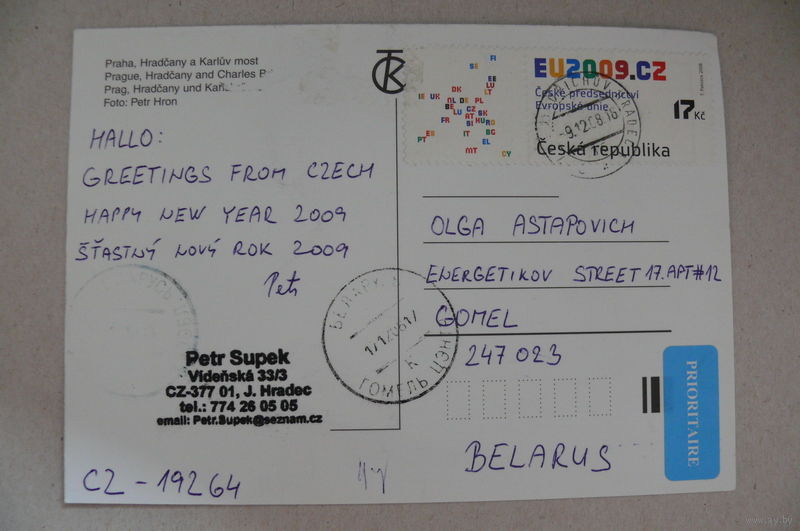 Praha, Hradčany a Karlův most
Prague, Hradčany and Charles
Prag, Hradčany und
Foto: Petr Hron
HALLO:
GREETINGS FROM CZECH
HAPPY NEW YEAR 2009
ŠŤASTNÝ NOVÝ ROK 2009
Petr
Petr Supek
Vídeňská 33/3
CZ-377 01, J. Hradec
tel.: 774 26 05 05
email: Petr.Supek@seznam.cz
CZ - 19264
EU2009.CZ
České předsednictví
Evropské unie
17 Kč
Česká republika
FI
SE
EE
LU
LT
DK
IE UK NL DE PL
BE
LU CZ SK
FR
AT
SI HU RO
PT ES IT BG
EL
MT CY
HRADEC
-9.12.08.16
ГОМЕЛЬ
OLGA ASTAPOVICH
ENERGETIKOV STREET 17. APT#12
GOMEL
247 023
BELARUS
PRIORITAIRE
www.ay.by